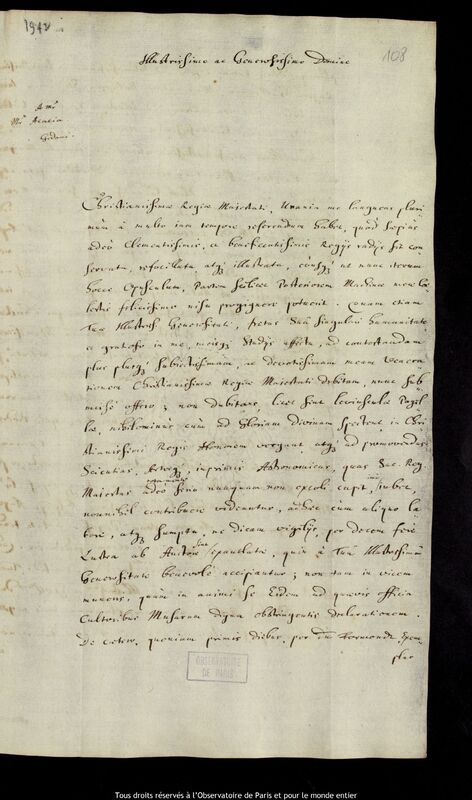 1942
108
Illustrissime ac Generosissime Domine
A Mr
Mr Acacia
Gedani.
Christianissimae Regiae Maiestati, Urania mea languens pluri
mum à multo iam tempore referendum habet, quod saepius
adeò Clementissimis, ac beneficentissimis Regijs radijs sit con
servata, refocillata, atq; illustrata,
hocce Opusculum, Partem scilicet Posteriorem Machinae meae Coe
lestis felicissimo nisu progignere potuerit. Quam etiam
Tuae Illustriss. Generositati, fretus Tuâ singulari humanitate
ac gratioso in me, meaq; Studia affectu, ad contestandam
plus plusq; subiectissimam, ac devotissimam meam venera
tionem Christianissimae Regiae Maiestati debitam, nunc sub
missè offero; non dubitans, licet sint levidensula
nihilominus cum ad Gloriam Divinam spectent, in Chri
stianissimi Regis Honorem vergant, atq; ad promovendas
Scientias, Artesq;, inprimis Astronomicas, quas Sac. Reg.
Maiestas adeò seriò nunquam non excoli cupit, iubet,
nonnihil contribuere videantur, adhaec cum aliquo la
bore, atq; sumptu, ne dicam vigilijs, per decem ferè
Lustra ab Autore sint epaulata, quin à Tuâ Illustrissimâ
Generositate benevolè accipiantur; non tam in vicem
muneris, quàm in animi se Eidem ad quaevis officia
Cultoribus Musarum digna obstringentis declarationem.
De caetero, quoniam primis diebus, per Dn. Formondt, Exem
plar
OBSERVATOIRE
DE PARIS
Tous droits réservés à l'Observatoire de Paris et pour le monde entier